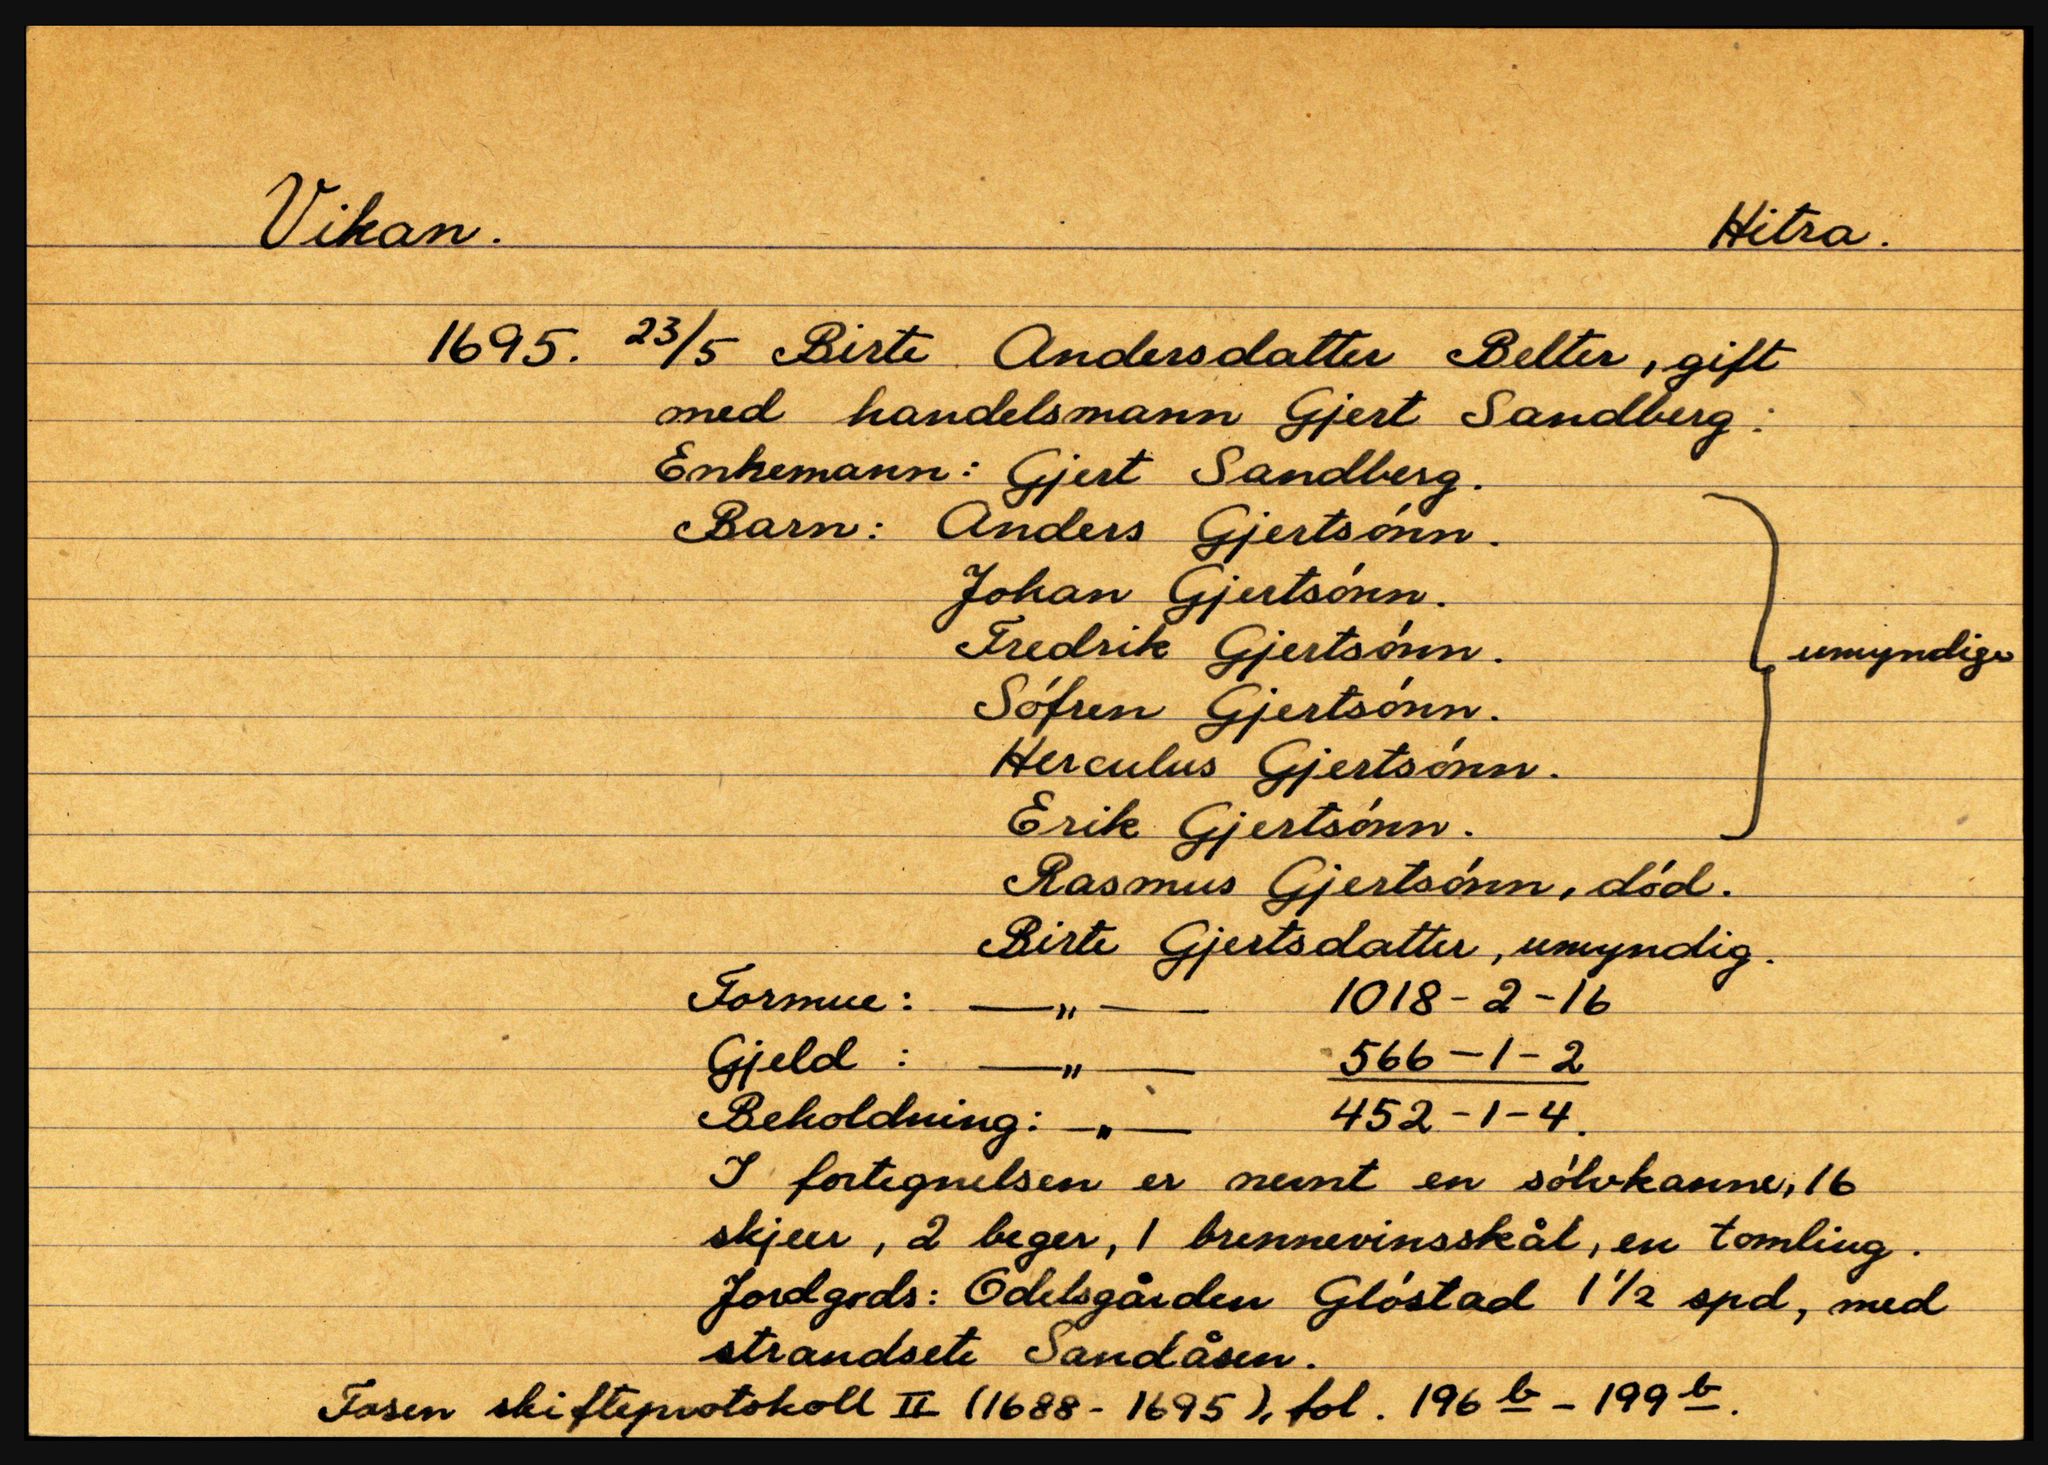 Vikan. Hitra.
1695. 23/5 Birte Andersdatter Belter, gift
med handelsmann Gjert Sandberg:
Enkemann: Gjert Sandberg.
Barn: Anders Gjertsónn.
Johan Gjertsónn.
Fredrik Gjertsónn.
umyndige
Sófren Gjertsónn.
Herculus Gjertsónn.
Erik Gjertsónn.
Rasmus Gjertsónn, dód.
Birte Gjertsdatter, umyndig.
Formue: —„— 1018-2-16
Gjeld : —„— 566-1-2
Beholdning: —„— 452-1-4.
I fortegnelsen er nevnt en sólvkanne, 16
skjeer, 2 beger, 1 brennevinsskål, en tomling.
Jordgods: Odelsgården Glóstad 1 1/2 spd, med
strandsete Sandåsen.
Fosen skifteprotokoll II (1688-1695), fol. 196 b - 199 b.